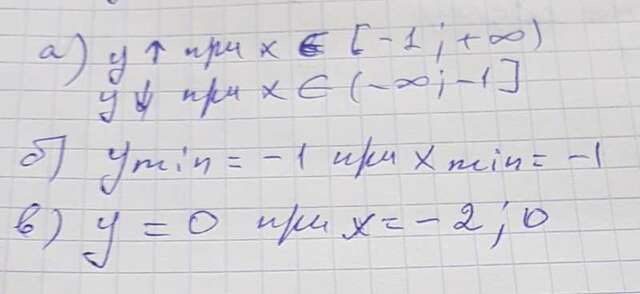 а) y ↑ при x ∈ [-1; +∞)
y ↓ при x ∈ (-∞; -1]
б) ymin = -1 при xmin = -1
в) y = 0 при x = -2; 0